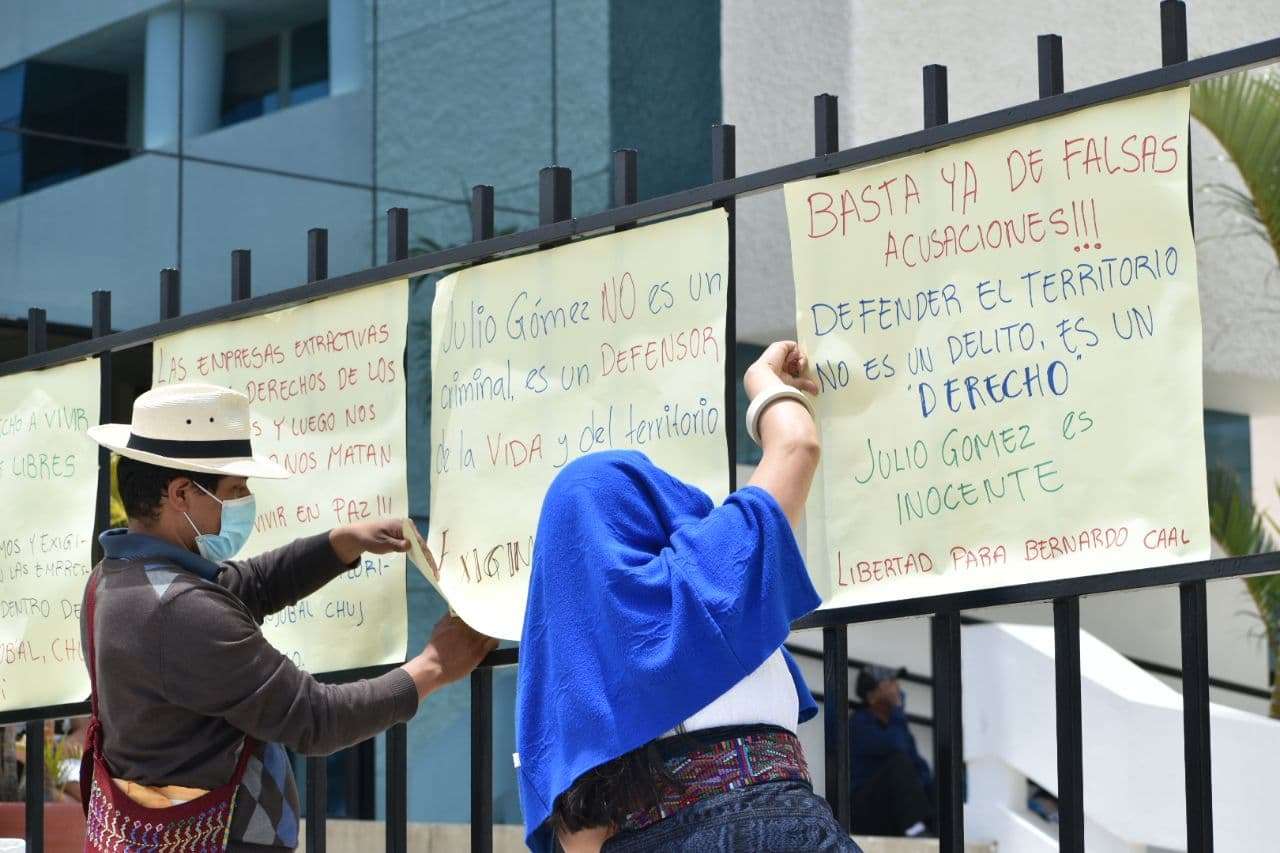 CHO A VIVIR
LIBRES
MOS Y EXIGI
LAS EMPRE
DENTRO DE
OBAL, CHU
LAS EMPRESAS EXTRACTIVAS
DERECHOS DE LOS
Y LUEGO NOS
NOS MATAN
VIVIR EN PAZ !!!
JOBAL CHUJ
Julio Gómez NO es un
criminal, es un DEFENSOR
de la VIDA y del territorio
BASTA YA DE FALSAS
ACUSACIONES!!!
DEFENDER EL TERRITORIO
NO ES UN DELITO, ES UN
"DERECHO"
JULIO GOMEZ es
INOCENTE
LIBERTAD PARA BERNARDO CAAL